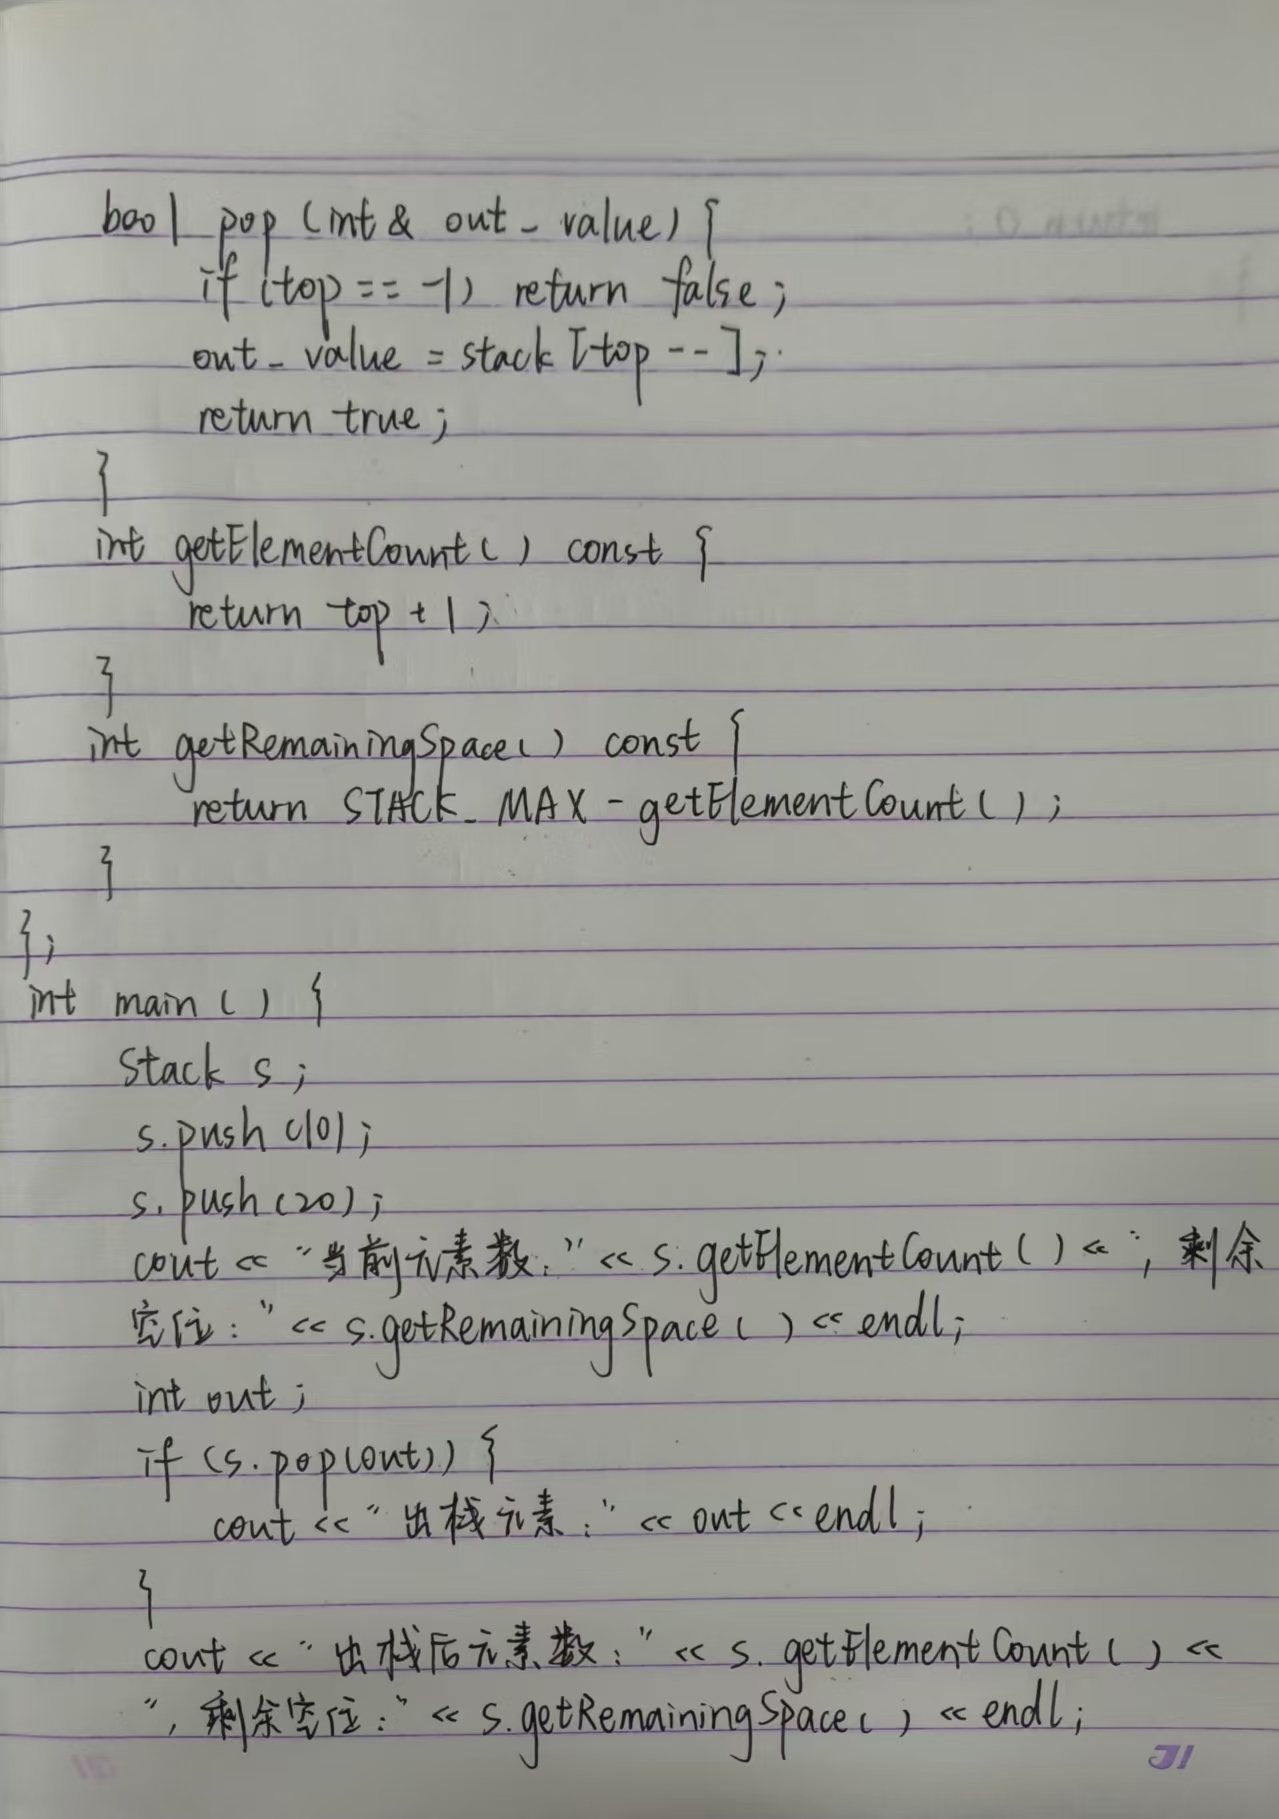 bool pop (int & out_value) {
if (top == -1) return false;
out_value = stack [top --];
return true;
}
int getElementCount() const {
return top + 1;
}
int getRemainingSpace() const {
return STACK_MAX - getElementCount();
}
};
int main () {
Stack s;
s.push (10);
s.push (20);
cout << "当前元素数:" << s.getElementCount() << ", 剩余
空位:" << s.getRemainingSpace () << endl;
int out;
if (s.pop(out)) {
cout << "出栈元素:" << out << endl;
}
cout << "出栈后元素数:" << s.getElementCount () <<
", 剩余空位:" << s.getRemainingSpace () << endl;
return 0;
}